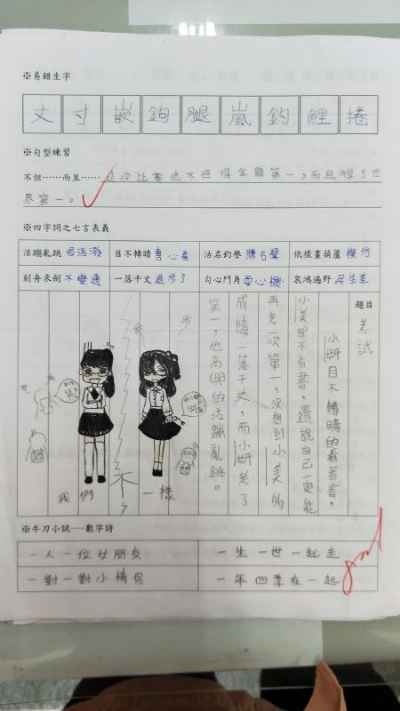 ※易錯生字
丈 寸 嵌 鉤 腿 嵐 鈎 鯉 捲
※句型練習
不但……而且……這次比賽他不但得全國第一,而且得了世
界第一。
※四字詞之七言表義
活蹦亂跳 目不轉睛 沽名釣譽 依樣畫葫蘆
刻舟求劍不變通 一落千丈退步了 勾心鬥角 哀鴻遍野
題目 考試
小妍目不轉睛的看著書。
小美卻不看書,還說自己一定能
再完一次第一,沒想到小美的
成績一落千丈,而小妍考了
第一,他高興的活蹦亂跳。
我們 不 一樣
※牛刀小試---數字詩
一人一位女朋友 一生一世一起走
一對一對小情侶 一年四季在一起
good